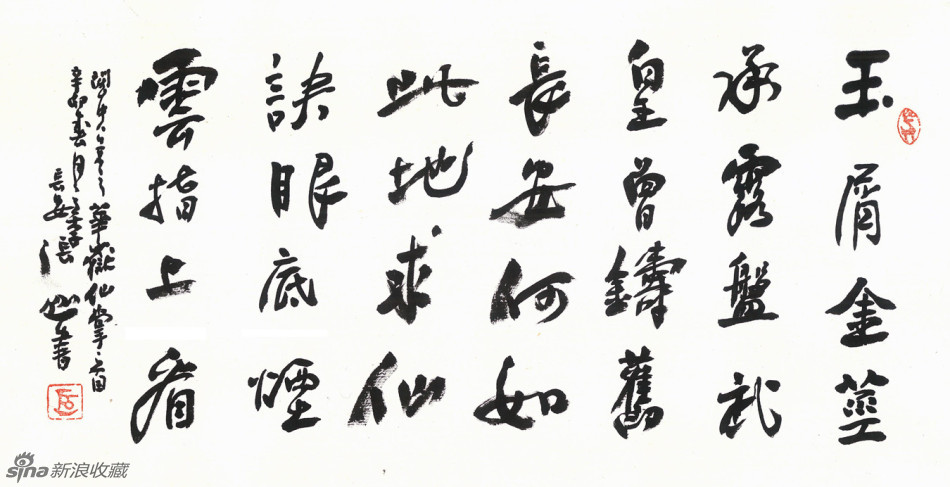 玉屑金莖
承露盤武
皇曾鑄舊
長安何如
此地求仙
訣眼底煙
雲指上看
華嶽仙掌一首
辛卯春月
長安
書
sina新浪收藏